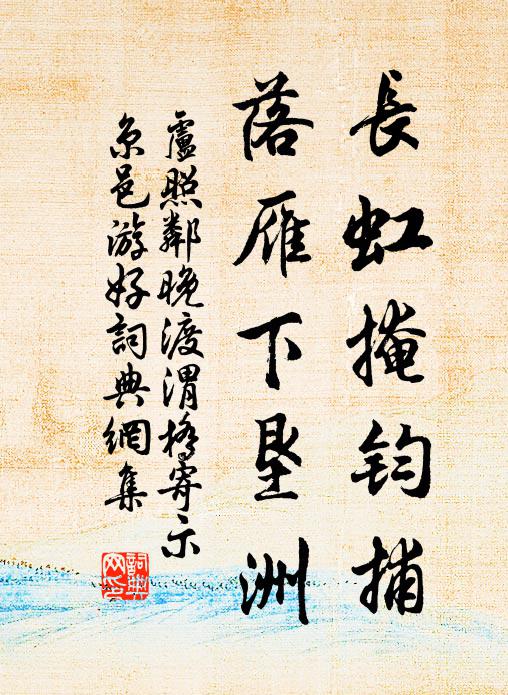 長虹掩钧捕
落雁下星洲
盧照鄰晚渡渭橋寄示
京邑游好詞典網集
詞典